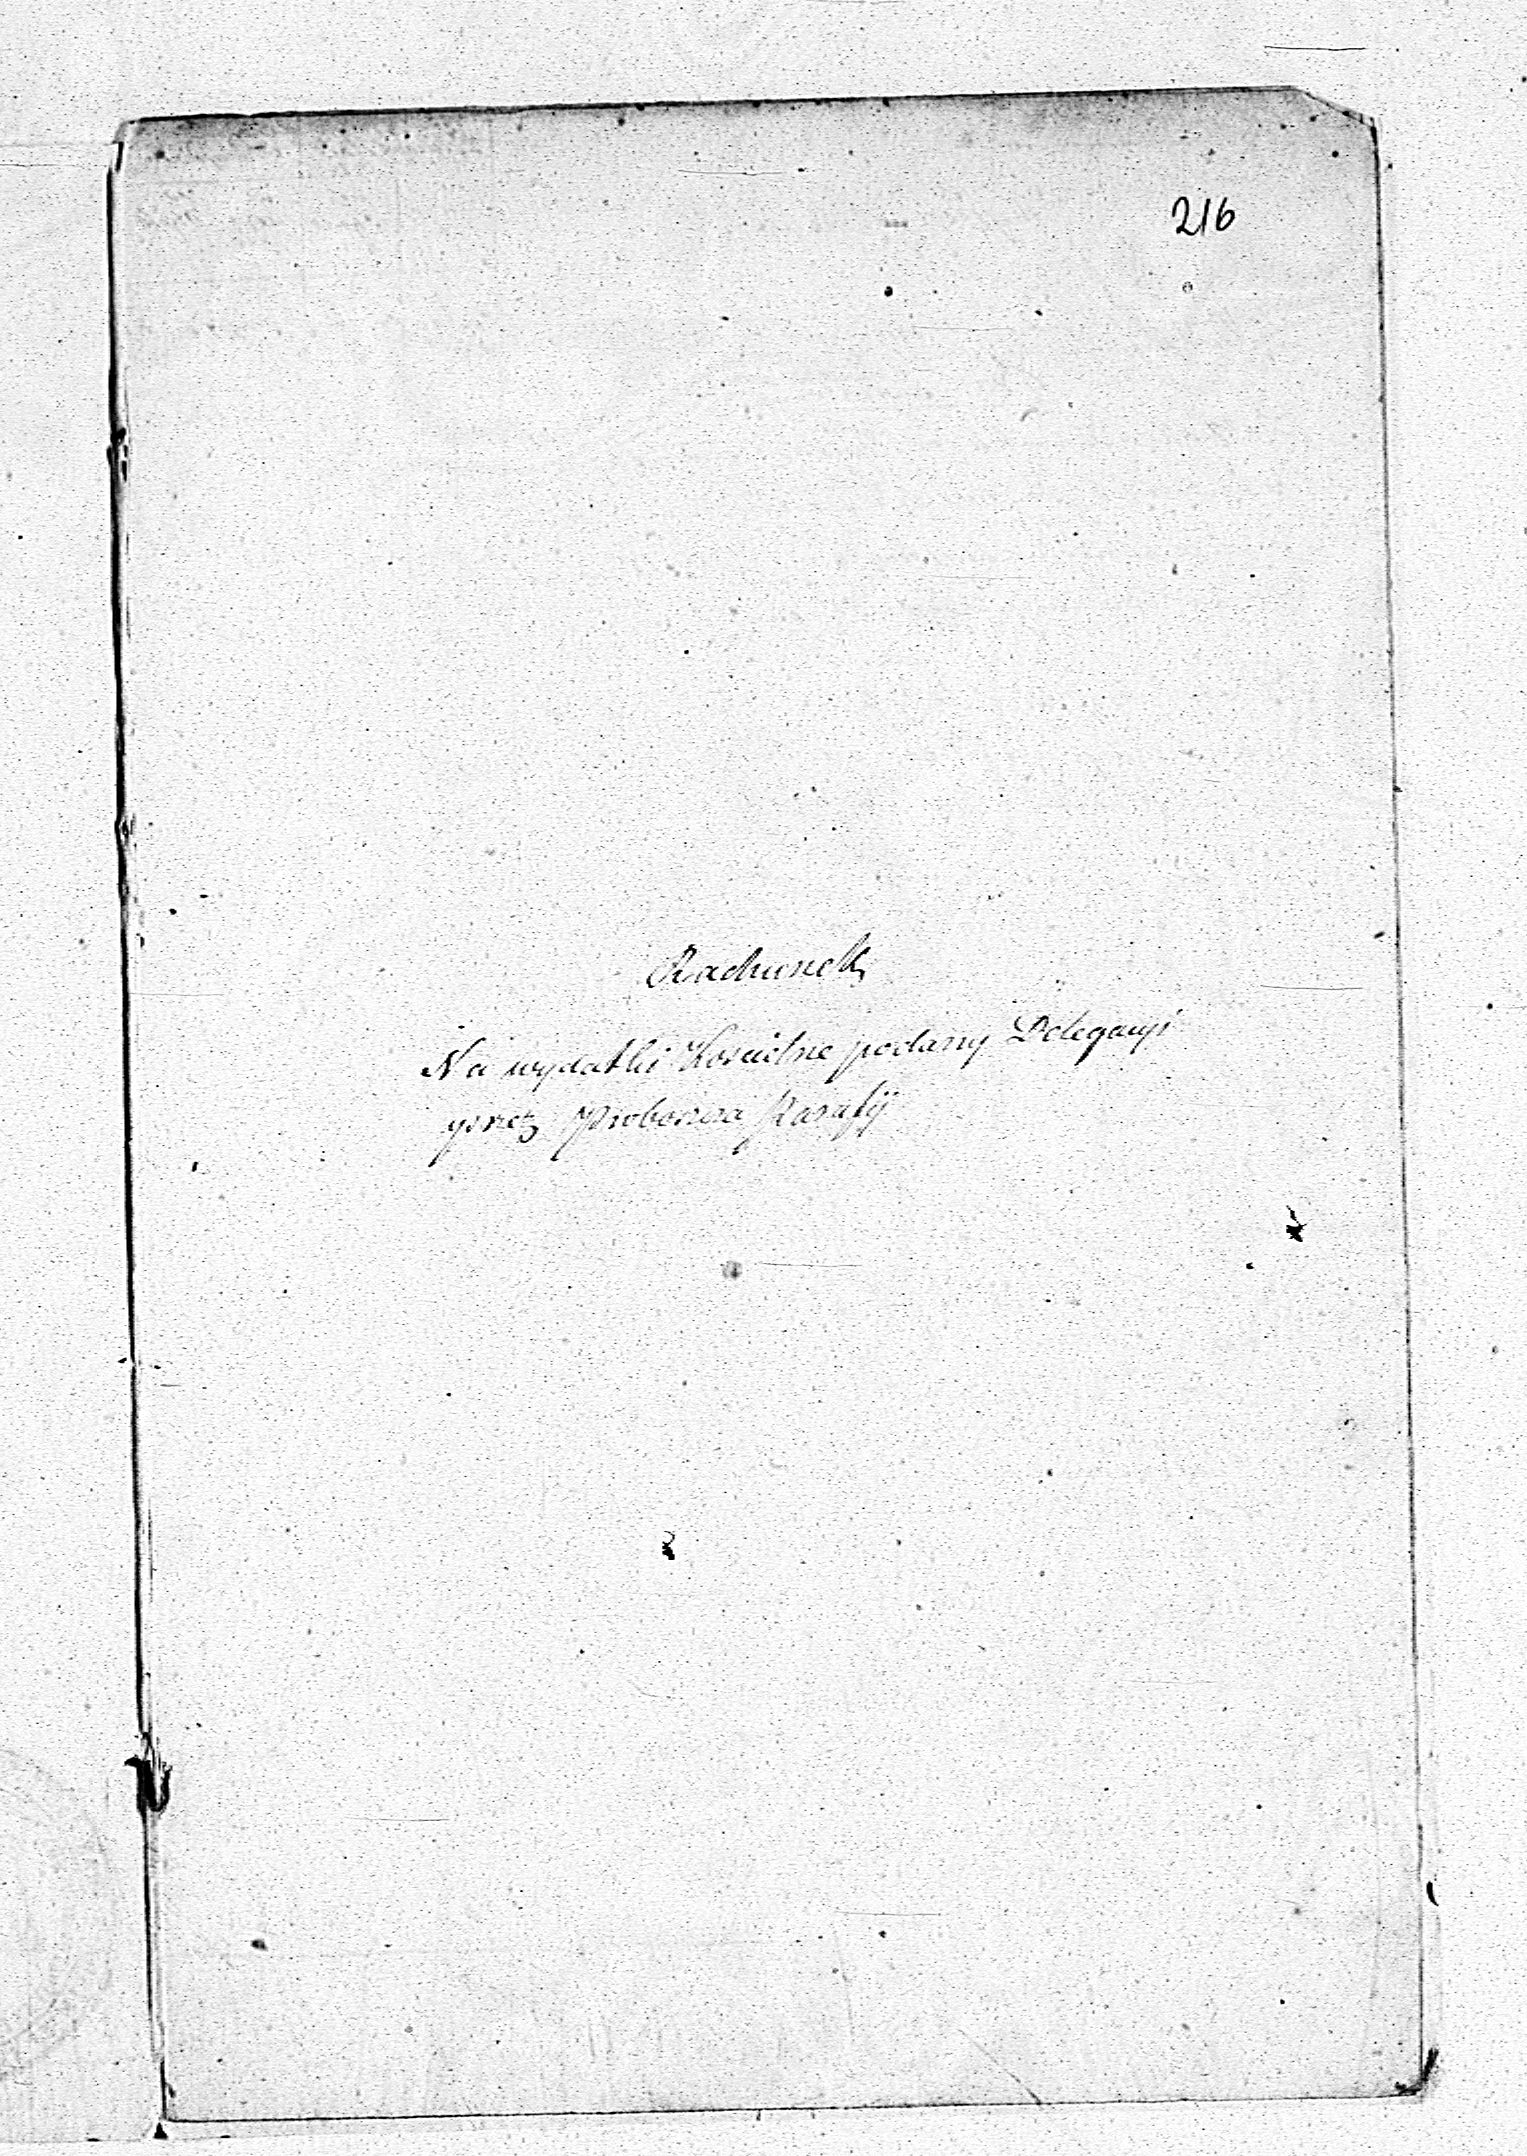 216
Rachunek
Na wydatki Koscielne podany Delegacyi
przez Proboszcza Parafij